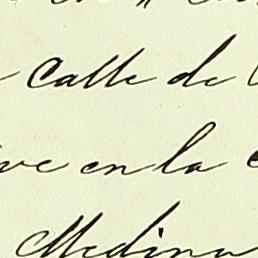 calle de
ve en la
Medina